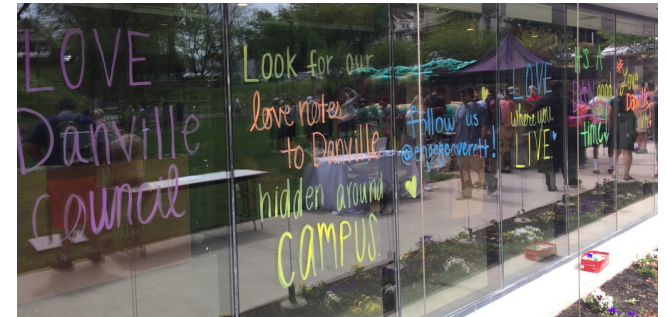 LOVE
Danville
Council
Look for our
love notes
to Danville
hidden around
CAMPUS.
follow us
@engageaverett!
LOVE
where you
LIVE
It's A
good
time
Love
Danville